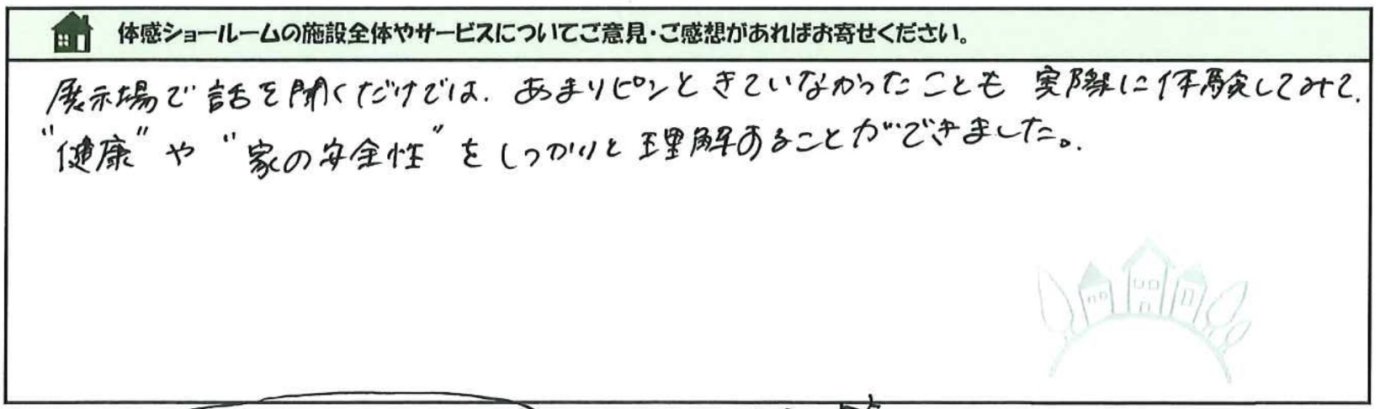 体感ショールームの施設全体やサービスについてご意見・ご感想があればお寄せください。
展示場で話を聞くだけでは、あまりピンときていなかったことも実際に体験してみて、
"健康"や"家の安全性"をしっかりと理解することができました。